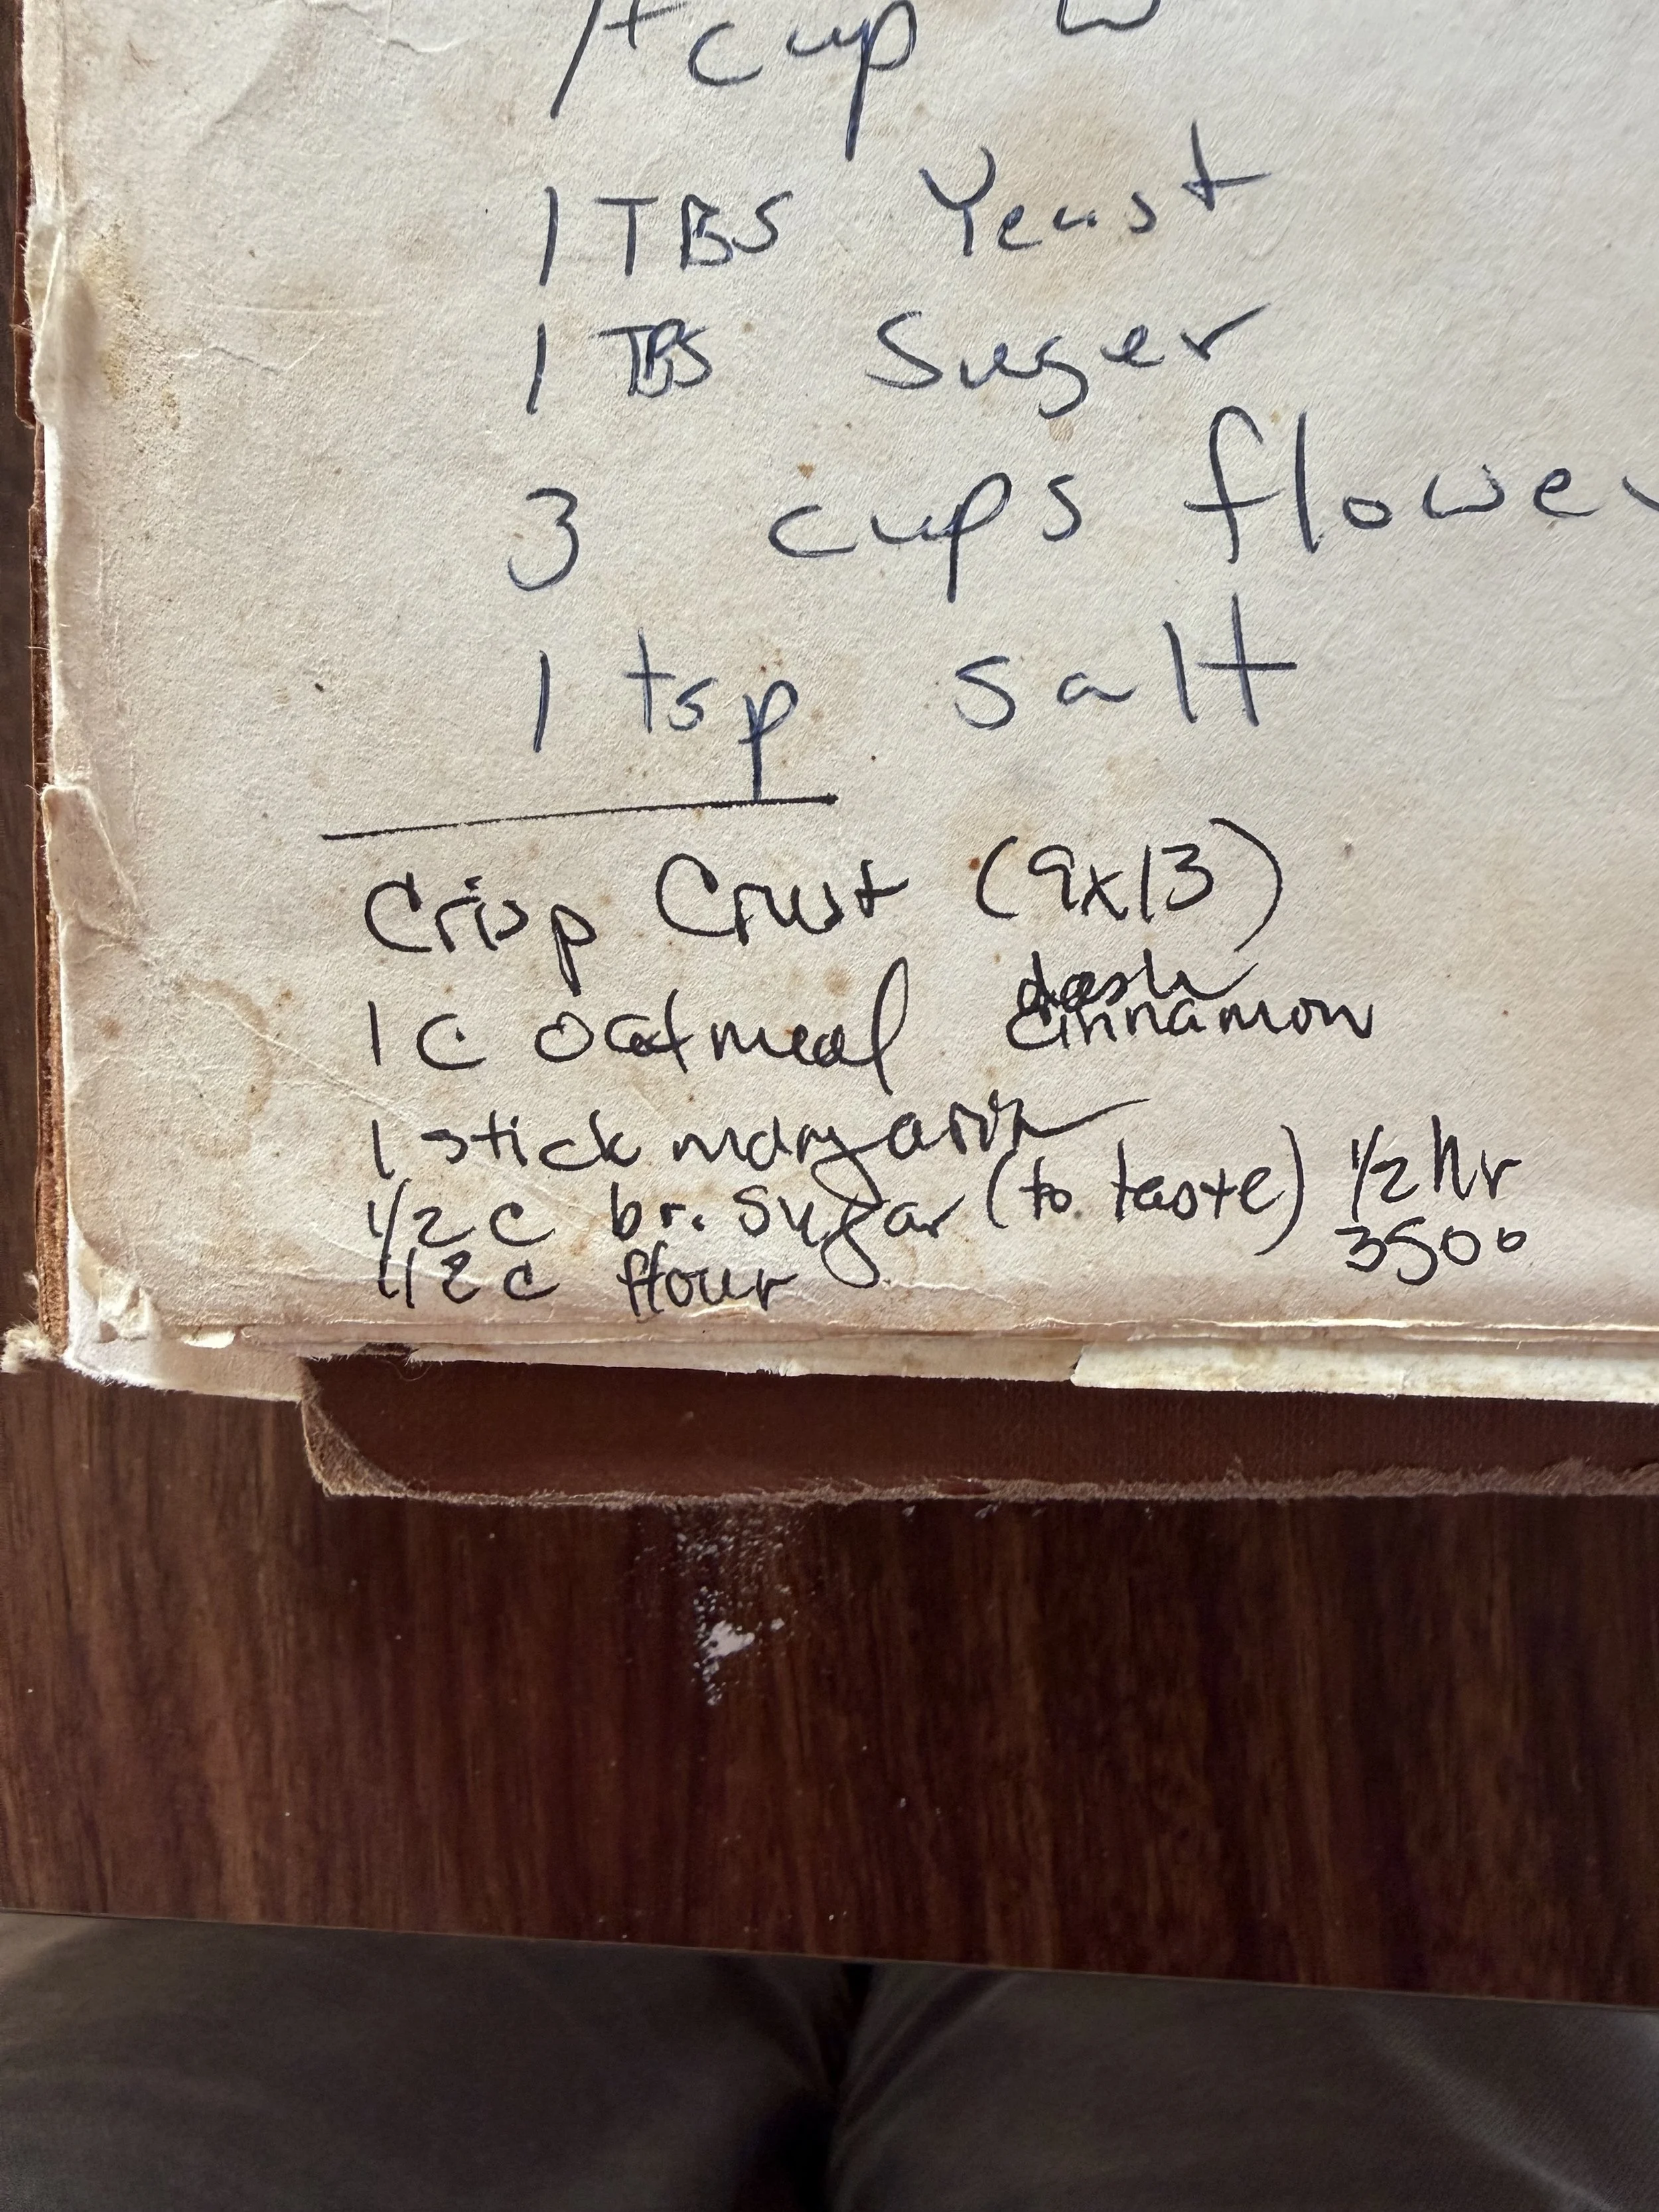 cup
1 TBS Yeast
1 TBS Suger
3 cups flower
1 tsp salt
Crisp Crust (9x13)
1 C Oatmeal dash cinnamon
1 stick margarin
1/2 C br. Sugar (to taste) 1/2 hr
1/2 C flour 350°